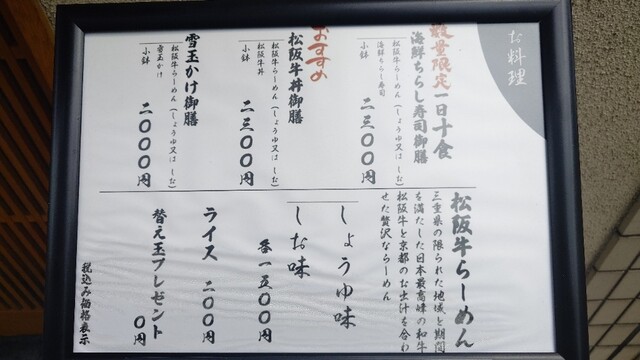 お料理
数量限定一日十食
海鮮ちらし寿司御膳
松阪牛らーめん(しょうゆ又は しお)
海鮮ちらし寿司
小鉢
二三〇〇円
おすすめ
松阪牛丼御膳
松阪牛らーめん(しょうゆ又は しお)
松阪牛丼
小鉢
二三〇〇円
雪玉かけ御膳
松阪牛らーめん(しょうゆ又は しお)
雪玉かけ
小鉢
二〇〇〇円
松阪牛らーめん
三重県の限られた地域と期間
を満たした日本最高峰の和牛
松阪牛と京都のお出汁を合わ
せた贅沢ならーめん
しょうゆ味
しお味
各一五〇〇円
ライス 二〇〇円
替え玉プレゼント 〇円
税込み価格表示